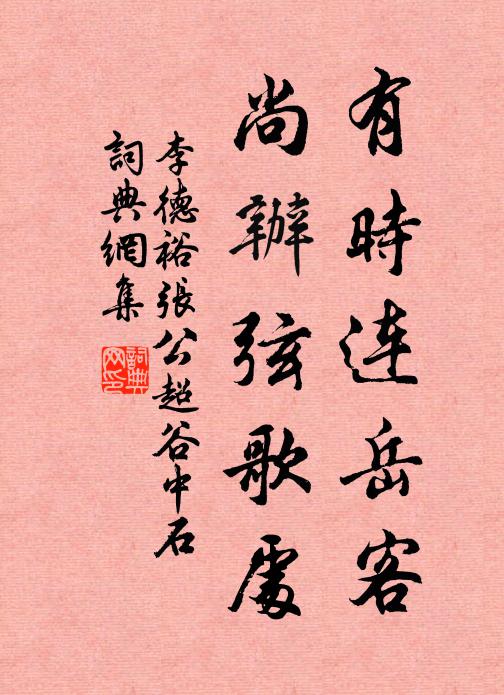 有時連岳客
尚辦弦歌處
李德裕張公超谷中石
詞典網集
詞典网印